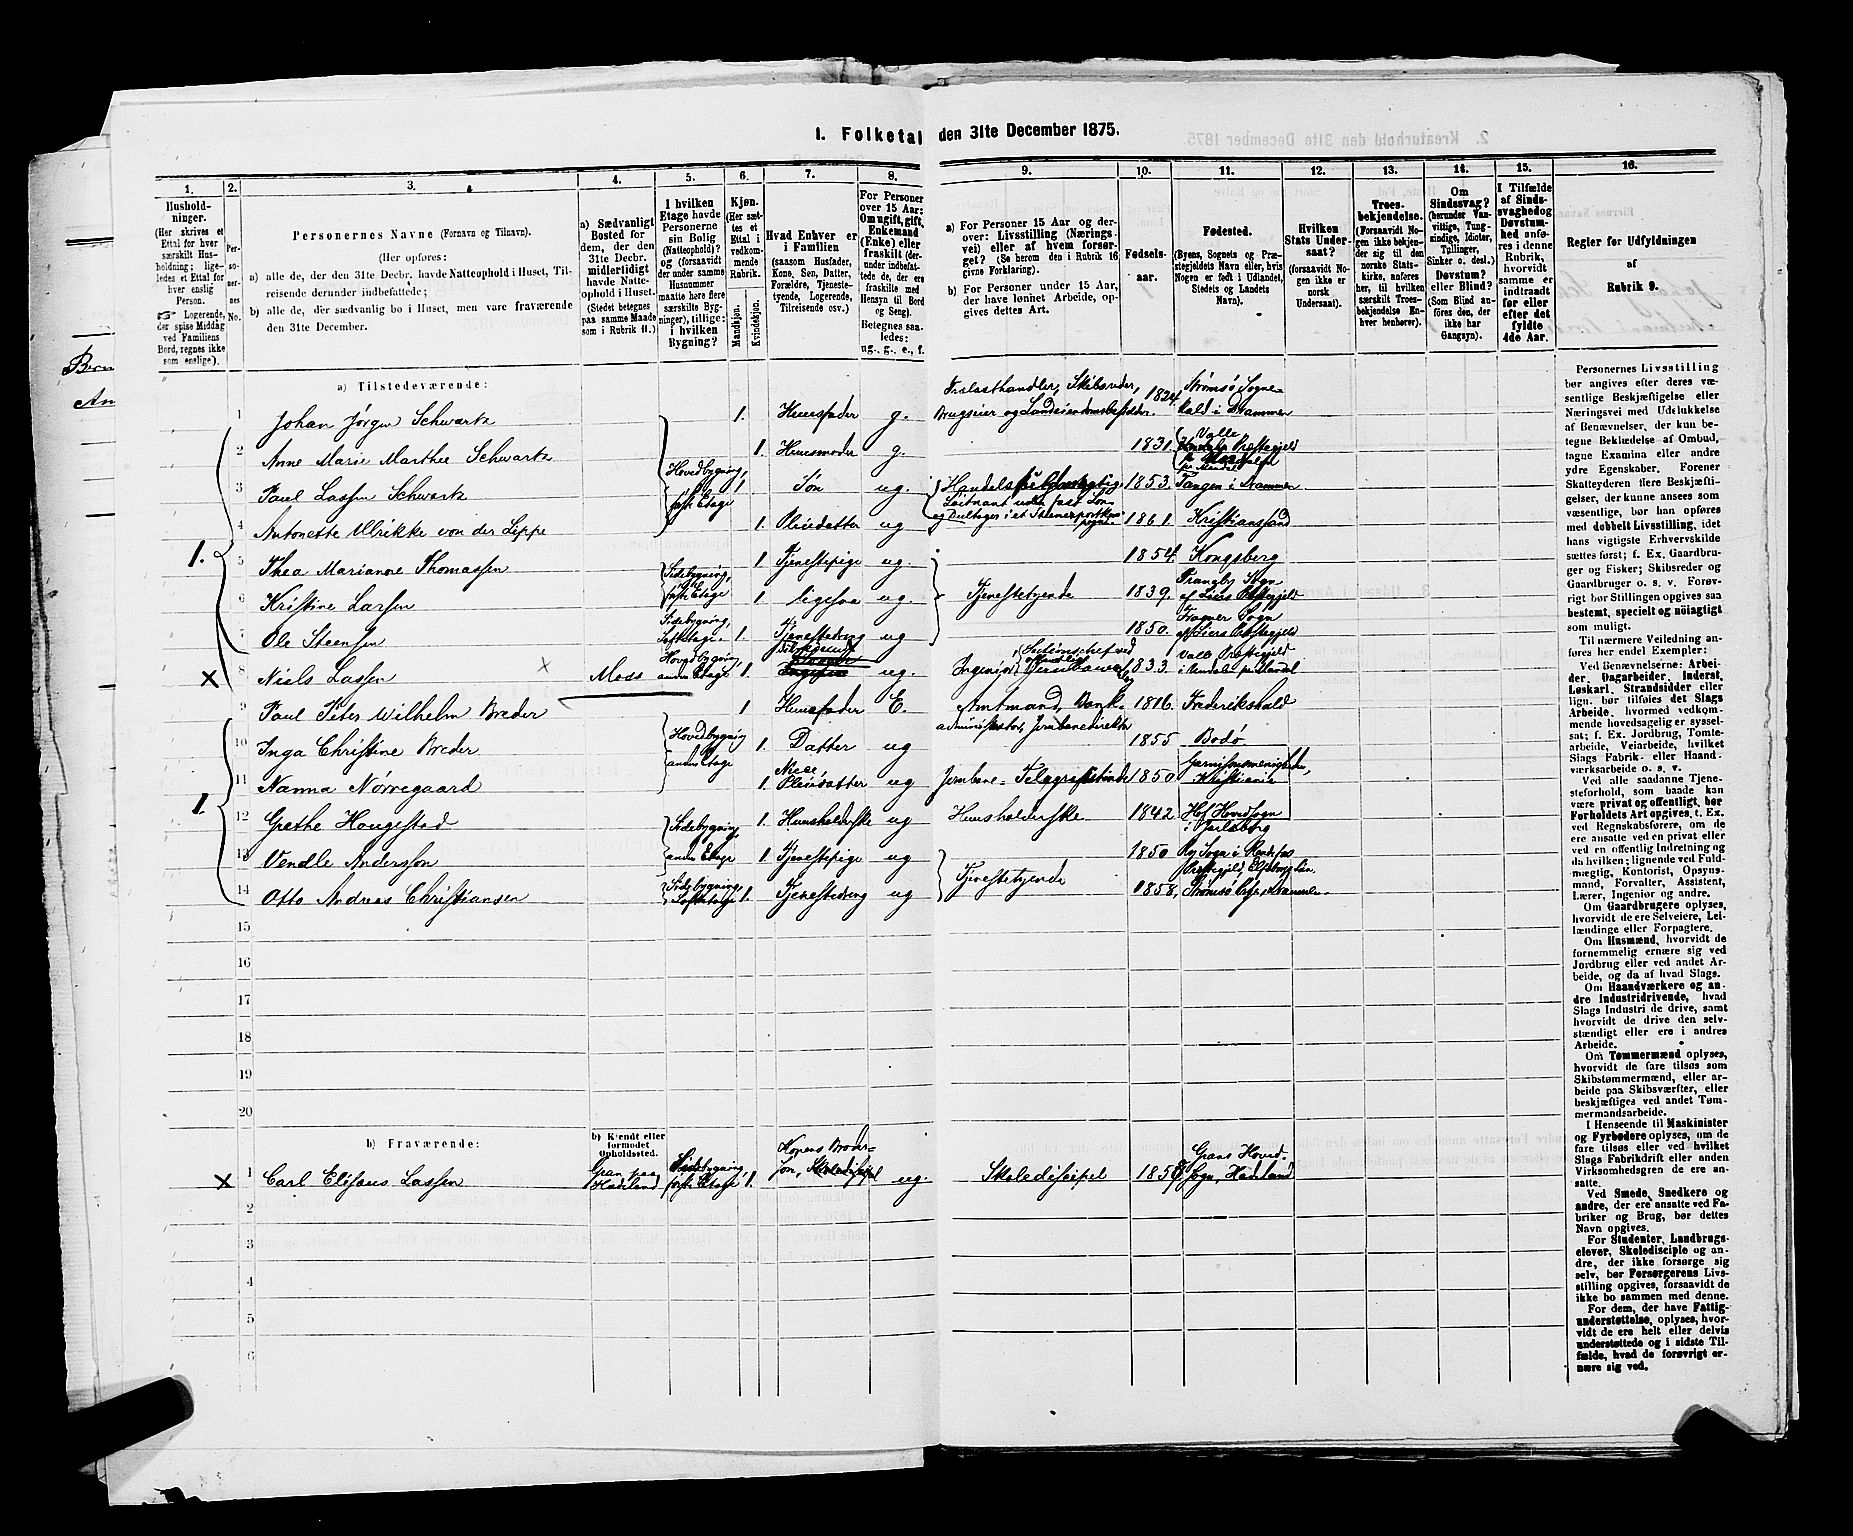 1. Folketal den 31te December 1875.
1. 2. 3. 4. 5. 6. 7. 8. 9. 10. 11. 12. 13. 14. 15. 16.
Husholdninger.
(Her skrives et Ettal for hver særskilt Husholdning; ligeledes et Ettal for hver enslig Person.
Logerende, der spise Middag ved Familiens Bord, regnes ikke som enslige).
Personernes No.
Personernes Navne (Fornavn og Tilnavn).
(Her opføres:
a) alle de, der den 31te Decbr. havde Natteophold i Huset, Tilreisende derunder indbefattede;
b) alle de, der sædvanlig bo i Huset, men vare fraværende den 31te December.
a) Sædvanligt Bosted for dem, der den 31te Decbr. midlertidigt havde Natteophold i Huset. (Stedet betegnes paa samme Maade som i Rubrik 11.)
I hvilken Etage havde Personerne sin Bolig (Natteophold)? og (forsaavidt der under samme Husnummer maatte høre flere særskilte Bygninger), tillige: i hvilken Bygning?
Kjøn. (Her sættes et Ettal i vedkommende Rubrik.
Mandkjøn. Kvindekjøn.
Hvad Enhver er i Familien
(saasom Husfader, Kone, Søn, Datter, Forældre, Tjenestetyende, Logerende, Tilreisende osv.
For Personer over 15 Aar: Om ugift, gift, Enkemand (Enke) eller fraskilt (derunder indbefattede de, der ere fraskilte med Hensyn til Bord og Seng).
Betegnes saaledes: ug., g., e., f.
a) For Personer 15 Aar og derover: Livsstilling (Næringsvei) eller af hvem forsørget? (Se herom den i Rubrik 16 givne Forklaring).
b) For Personer under 15 Aar, der have lønnet Arbeide, opgives dettes Art.
Fødselsaar.
Fødested.
(Byens, Sognets og Præstegjeldets Navn eller, hvis Nogen er født i Udlandet, Stedets og Landets Navn).
Hvilken Stats Undersaat?
(forsaavidt Nogen ikke er norsk Undersaat).
Troesbekjendelse.
(Forsaavidt Nogen ikke bekjender sig til den norske Statskirke, anføres her, til hvilken særskilt Troesbekjendelse Enhver henhører).
Om Sindssvag? (herunder Vanvittige, Tungsindige, Idioter, Tullinger, Sinker o. desl.)
Døvstum? eller Blind?
(Som Blind anføres den, der ikke har Gangsyn).
I Tilfælde af Sindssvaghed og Døvstumhed anføres i denne Rubrik, hvorvidt samme er indtraadt før eller efter det fyldte 4de Aar.
Regler for Udfyldningen
af
Rubrik 9.
a) Tilstedeværende:
1 Johan Jørgen Schwartz 1. Huusfader g. Trælasthandler, Skibsreder, Brugseier og Landeiendomsbesidder. 1824. Strømsø Sogne- kald i Drammen
2 Anne Marie Marthee Schwartz 1. Huusmoder g. 1831.
3 Paul Lassen Schwartz Hovedbygning, første Etage 1 Søn ug. 1853. Tangen i Drammen
4 Antonette Ulrikke von der Lippe 1. Pleiedatter ug 1861. Kristianssand
1.
5 Thea Marianne Thomassen Sidebygning, første Etage 1 Tjenestepige ug. 1854. Kongsberg
6 Kristine Larsen 1 ligesaa ug. Tjenestetyende 1839. Frangby Sogn af Liers Præstegjeld
7 Ole Steensen Sidebygning, Loftetage. 1. Tjenestedreng ug 1850. Frogner Sogn af Liers Præstegjeld
× 8 Niels Lassen × Moss Hovedbygning, anden Etage 1. ug. Ingeniør, Sectionschef ved 1833.
9 Paul Peter Wilhelm Breder 1 Huusfader E. Amtmand, Bank- administrator, Jernbanedirektør 1816. Frederikshald
10 Inga Christine Breder Hovedbygning anden Etage 1. Datter ug 1855 Bodø
11 Nanna Nørregaard 1. Niece, Pleiedatter ug Jernbane-Telegrafistinde 1850 Garnisonsmenigheden, Kristiania
1.
12 Grethe Haugestad Sidebygning, anden Etage 1. Huusholderske ug Huusholderske 1842. Hof Hovedsogn i Jarlsberg
13 Vendle Andersson 1. Tjenestepige ug Tjenestetyende 1850
14 Otto Andreas Christiansen Sidebygning, Loftetage 1. Tjenestedreng ug 1858, Strømsø
15
16
17
18
19
20
b) Fraværende:
b) Kjendt eller formodet Opholdssted.
× 1 Carl Elisæus Lassen Gran paa Hadeland Sidebygning, første Etage 1. Konens Broder- søn, Skoledisipel ug. Skoledisipel Grans Hoved- Sogn, Hadeland
2
3
4
5
6
Personernes Livsstilling bør angives efter deres væsentlige Beskjæftigelse eller Næringsvei med Udelukkelse af Benævnelser, der kun betegne Beklædelse af Ombud, tagne Examina eller andre ydre Egenskaber. Forener Skatteyderen flere Beskjæftigelser, der kunne ansees som væsentlige, bør han opføres med dobbelt Livsstilling, idet hans vigtigste Erhvervskilde sættes først; f. Ex. Gaardbruger og Fisker; Skibsreder og Gaardbruger o. s. v. Forøvrigt bør Stillingen opgives saa bestemt, specielt og nøiagtigt som muligt.
Til nærmere Veiledning anføres her endel Exempler:
Ved Benævnelserne: Arbeider, Dagarbeider, Inderst, Løskarl, Strandsidder eller lign. bør tilføies det Slags Arbeide, hvormed vedkommende hovedsagelig er sysselsat; f. Ex. Jordbrug, Tomtearbeide, Veiarbeide, hvilket Slags Fabrik- eller Haandværksarbeide o. s. v.
Ved alle saadanne Tjenesteforhold, som baade kan være privat og offentligt, bør Forholdets Art opgives, t. Ex. ved Regnskabsførere, om de ere ansatte ved en privat eller ved en offentlig Indretning og da hvilken; lignende ved Fuldmægtig, Kontorist, Opsynsmand, Forvalter, Assistent, Lærer, Ingeniør og andre.
Om Gaardbrugere oplyses, hvorvidt de ere Selveiere, Leilændinge eller Forpagtere.
Om Husmænd, hvorvidt de fornemmelig ernære sig ved Jordbrug eller ved andet Arbeide, og da af hvad Slags.
Om Haandværkere og andre Industridrivende, hvad Slags Industri de drive, samt hvorvidt de drive den selvstændigt eller ere i andres Arbeide.
Om Tømmermænd oplyses, hvorvidt de fare tilsøs som Skibstømmermænd, eller arbeide paa Skibsværfter, eller beskjæftiges ved andet Tømmermandsarbeide.
I Henseende til Maskinister og Fyrbødere oplyses, om de fare tilsøs eller ved hvilket Slags Fabrikdrift eller anden Virksomhedsgren de ere ansatte.
Ved Smede, Snedkere og andre, der ere ansatte ved Fabriker og Brug, bør dettes Navn opgives.
For Studenter, Landbrugselever, Skoledisciple og andre, der ikke forsørge sig selv, bør Forsørgerens Livsstilling opgives, forsaavidt de ikke bo sammen med denne.
For dem, der have Fattigunderstøttelse, oplyses, hvorvidt de ere helt eller delvis understøttede og i sidste Tilfælde, hvad de forøvrigt ernære sig ved.